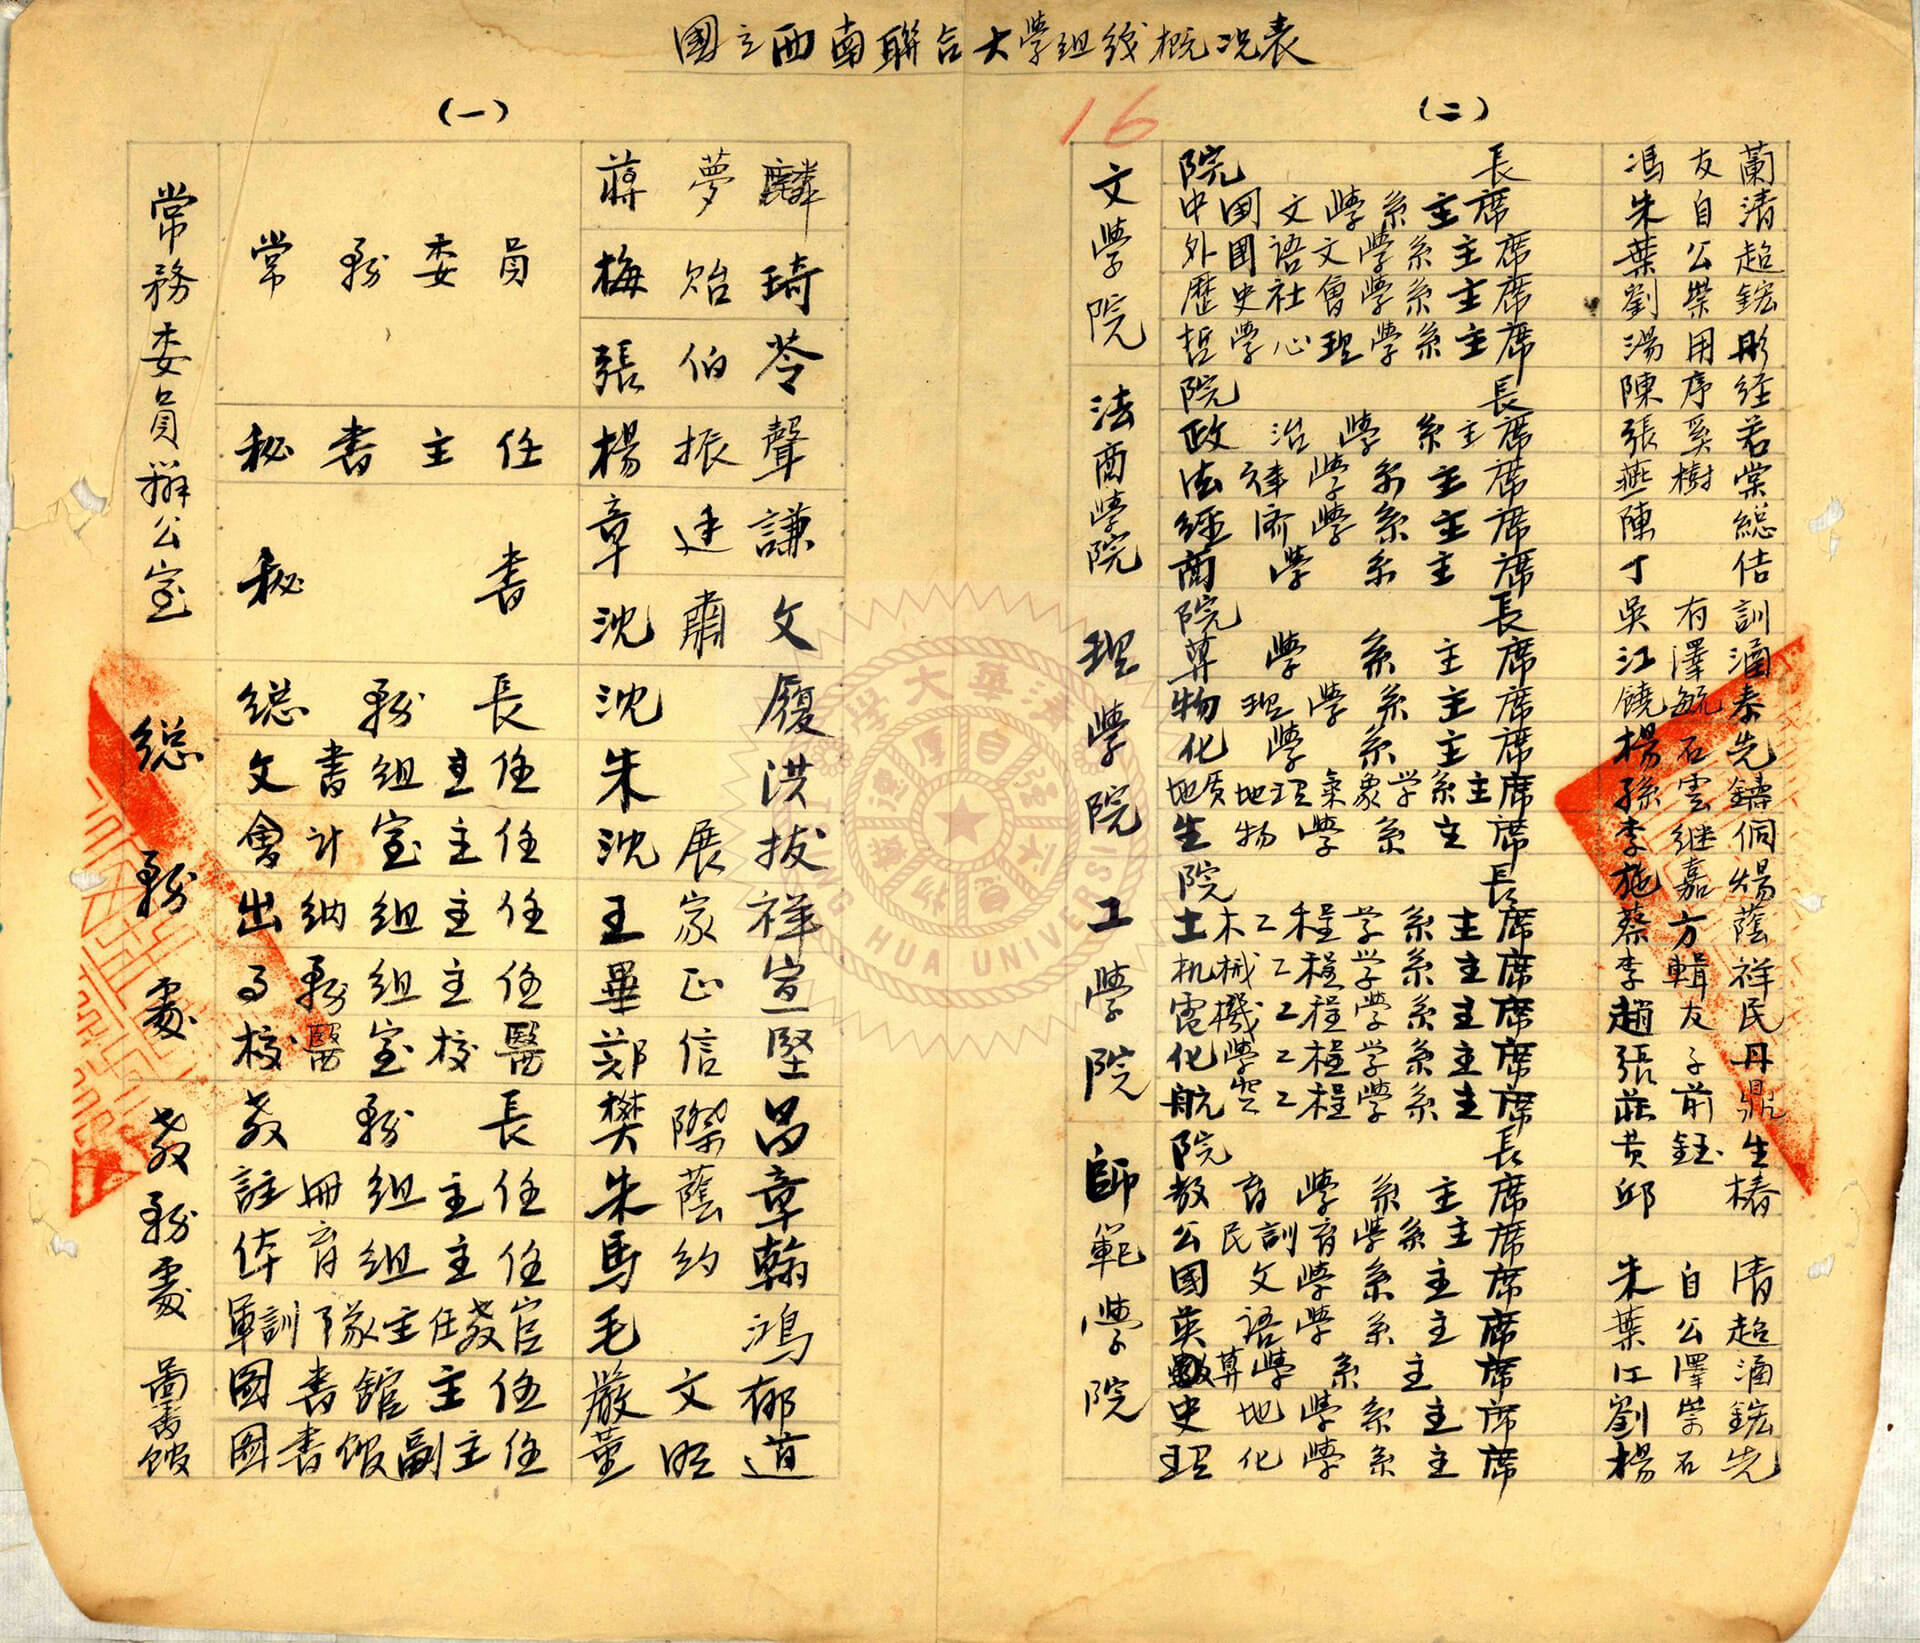 國立西南聯合大學組織概况表
16
(一)
常務委員辦公室
常務委員 蔣夢麟
梅貽琦
張伯苓
秘書主任 楊振聲
秘書 章廷謙
沈肅文
總務處
總務長 沈履
文書組主任 朱洪
會計室主任 沈展拔
出納組主任 王家祥
事務組主任 畢正宣
校醫室校醫 鄭信堅
教務處
教務長 樊際昌
註冊組主任 朱蔭章
体育組主任 馬約翰
軍訓隊主任教官 毛鴻
圖書館
國書館主任 嚴文郁
國書館副主任 董明道
(二)
文學院
院長 馮友蘭
中国文學系主席 朱自清
外國語文學系主席 葉公超
歷史社會學系主席 劉崇鋐
哲學心理學系主席 湯用彤
法商學院
院長 陳序経
政治學系主席 張奚若
法律學系主席 燕樹棠
經济學系主席 陳総
商學系主席 丁佶
理學院
院長 吳有訓
算學系主席 江澤涵
物理學系主席 饒毓泰
化學系主席 楊石先
地质地理氣象学系主席 孫雲鑄
生物學系主席 李継侗
工學院
院長 施嘉煬
土木工程学系主席 蔡方蔭
机械工程学系主席 李輯祥
電機工程學系主席 趙友民
化學工程学系主席 張子丹
航空工程學系主席 莊前鼎
師範學院
院長 黄鈺生
教育學系主席 邱椿
公民訓育學系主席
國文學系主席 朱自清
英語學系主席 葉公超
算學系主席 江澤涵
史地學系主席 劉崇鋐
理化學系主席 楊石先
清華大學
自強不息
厚德載物
TSING HUA UNIVERSITY